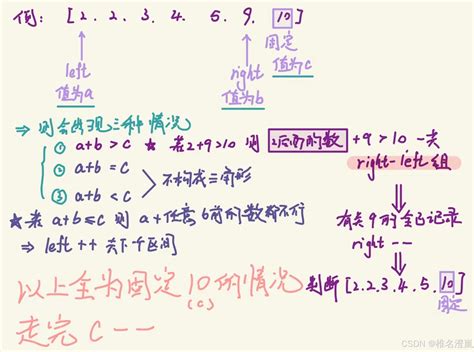 例: [2. 2. 3. 4. 5. 9. 10]
left
值为a
right
值为b
固定
值为c
⇒ 则会出现三种情况
① a+b > c ★ 若2+9>10 则 2后面的数 +9>10 一共
right-left组
② a+b = c
③ a+b < c
> 不构成三角形
★ 若 a+b≤c 则 a+任意b前的数都不行
⇒ left ++ 去下个区间
有关9的全已记录
right --
以上全为固定10的情况
(c)
走完 c --
判断 [2.2.3.4.5.10]
固定
CSDN @椎名澄嵐